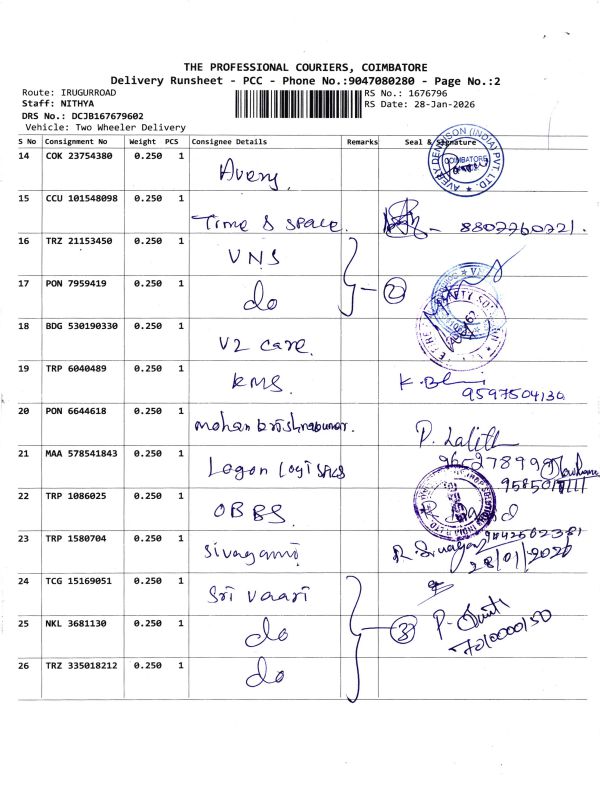 THE PROFESSIONAL COURIERS, COIMBATORE
Delivery Runsheet - PCC - Phone No.:9047080280 - Page No.:2
Route: IRUGURROAD
Staff: NITHYA
DRS No.: DCJB167679602
Vehicle: Two Wheeler Delivery
RS No.: 1676796
RS Date: 28-Jan-2026
S No Consignment No Weight PCS Consignee Details Remarks Seal & Signature
14 COK 23754380 0.250 1 Avery.
AVERY DENNISON (INDIA) PVT. LTD.
COIMBATORE
15 CCU 101548098 0.250 1 Time & space. 8807760721.
16 TRZ 21153450 0.250 1 VNS
17 PON 7959419 0.250 1 do 2
18 BDG 530190330 0.250 1 V2 care.
19 TRP 6040489 0.250 1 KMS K.
9597504130
20 PON 6644618 0.250 1 mohan krishnakumar.
P. Lalith
21 MAA 578541843 0.250 1 Logon logistics
22 TRP 1086025 0.250 1 OBBS
23 TRP 1580704 0.250 1 Sivagami
9842562381
28/01/2026
24 TCG 15169051 0.250 1 Sri Vaari
25 NKL 3681130 0.250 1 do 3 P.
7010000150
26 TRZ 335018212 0.250 1 do